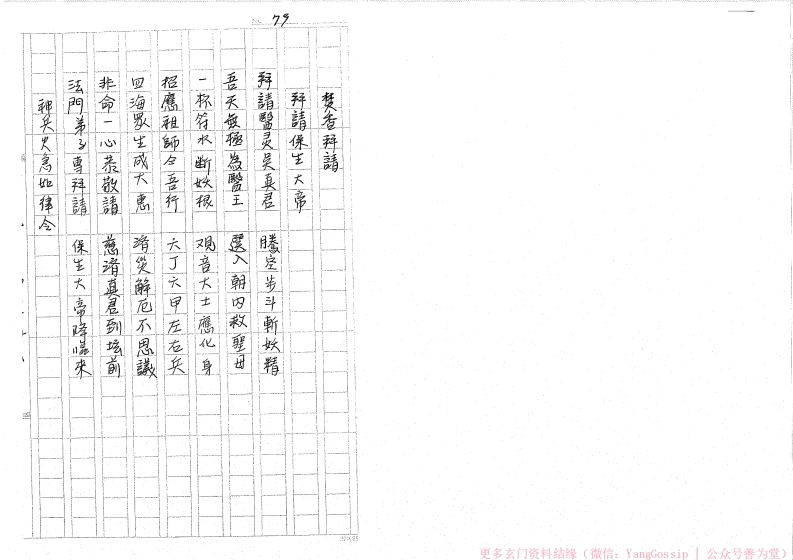 79
焚香拜請
拜請保生大帝
拜請醫灵吳真君　騰空步斗斬妖精
吾天無極為醫王　選入朝内救聖母
一杯符水斷妖根　观音大士應化身
招應祖師令吾行　六丁六甲左右兵
四海眾生成大惠　消災解厄不思議
非命一心恭敬請　慈濟真君到坛前
法門弟子專拜請　保生大帝降臨來
神兵火急如律令
更多玄门资料结缘（微信：YangGossip | 公众号善为堂）